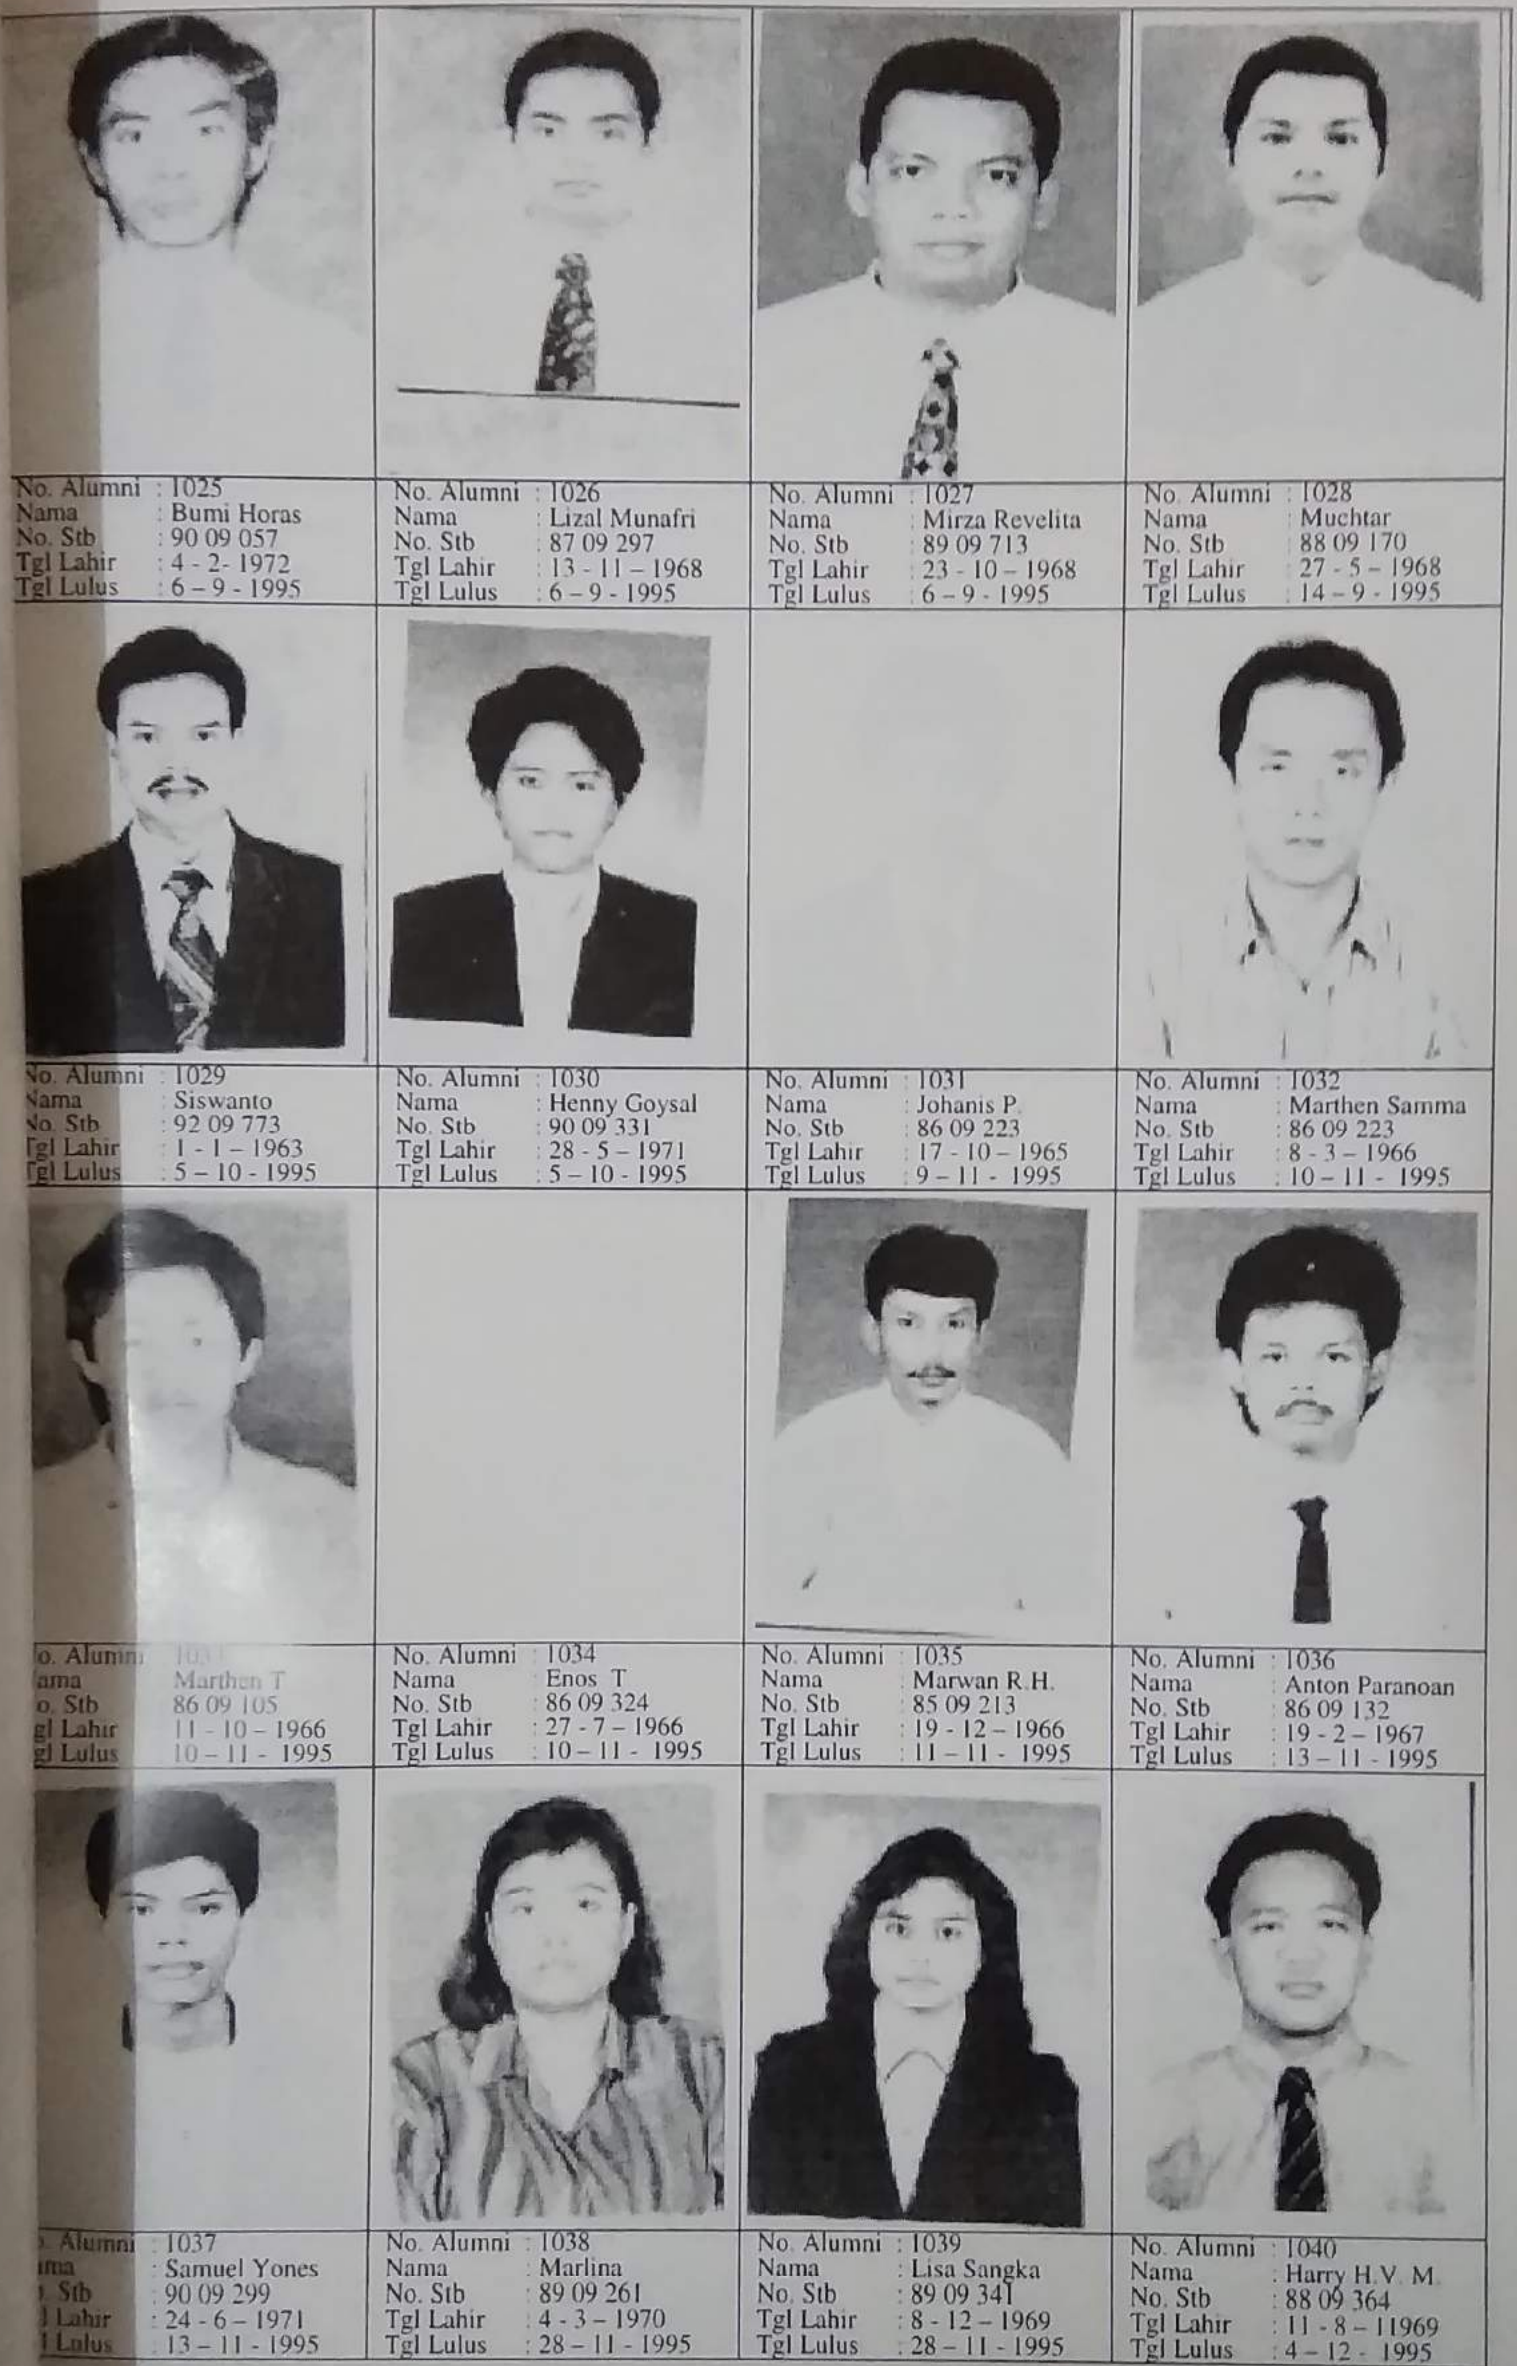 No. Alumni : 1025
Nama : Bumi Horas
No. Stb : 90 09 057
Tgl Lahir : 4 - 2- 1972
Tgl Lulus : 6 – 9 - 1995
No. Alumni : 1026
Nama : Lizal Munafri
No. Stb : 87 09 297
Tgl Lahir : 13 - 11 – 1968
Tgl Lulus : 6 – 9 - 1995
No. Alumni : 1027
Nama : Mirza Revelita
No. Stb : 89 09 713
Tgl Lahir : 23 - 10 – 1968
Tgl Lulus : 6 – 9 - 1995
No. Alumni : 1028
Nama : Muchtar
No. Stb : 88 09 170
Tgl Lahir : 27 - 5 – 1968
Tgl Lulus : 14 – 9 - 1995
No. Alumni : 1029
Nama : Siswanto
No. Stb : 92 09 773
Tgl Lahir : 1 - 1 – 1963
Tgl Lulus : 5 – 10 - 1995
No. Alumni : 1030
Nama : Henny Goysal
No. Stb : 90 09 331
Tgl Lahir : 28 - 5 – 1971
Tgl Lulus : 5 – 10 - 1995
No. Alumni : 1031
Nama : Johanis P.
No. Stb : 86 09 223
Tgl Lahir : 17 - 10 – 1965
Tgl Lulus : 9 – 11 - 1995
No. Alumni : 1032
Nama : Marthen Samma
No. Stb : 86 09 223
Tgl Lahir : 8 - 3 – 1966
Tgl Lulus : 10 – 11 - 1995
o. Alumni
ama Marthen T
o. Stb 86 09 105
gl Lahir 11 - 10 – 1966
gl Lulus 10 – 11 - 1995
No. Alumni : 1034
Nama : Enos T
No. Stb : 86 09 324
Tgl Lahir : 27 - 7 – 1966
Tgl Lulus : 10 – 11 - 1995
No. Alumni : 1035
Nama : Marwan R.H.
No. Stb : 85 09 213
Tgl Lahir : 19 - 12 – 1966
Tgl Lulus : 11 – 11 - 1995
No. Alumni : 1036
Nama : Anton Paranoan
No. Stb : 86 09 132
Tgl Lahir : 19 - 2 – 1967
Tgl Lulus : 13 – 11 - 1995
. Alumni : 1037
ma : Samuel Yones
. Stb : 90 09 299
l Lahir : 24 - 6 – 1971
l Lulus : 13 – 11 - 1995
No. Alumni : 1038
Nama : Marlina
No. Stb : 89 09 261
Tgl Lahir : 4 - 3 – 1970
Tgl Lulus : 28 – 11 - 1995
No. Alumni : 1039
Nama : Lisa Sangka
No. Stb : 89 09 341
Tgl Lahir : 8 - 12 – 1969
Tgl Lulus : 28 – 11 - 1995
No. Alumni : 1040
Nama : Harry H.V. M.
No. Stb : 88 09 364
Tgl Lahir : 11 - 8 – 11969
Tgl Lulus : 4 – 12 - 1995